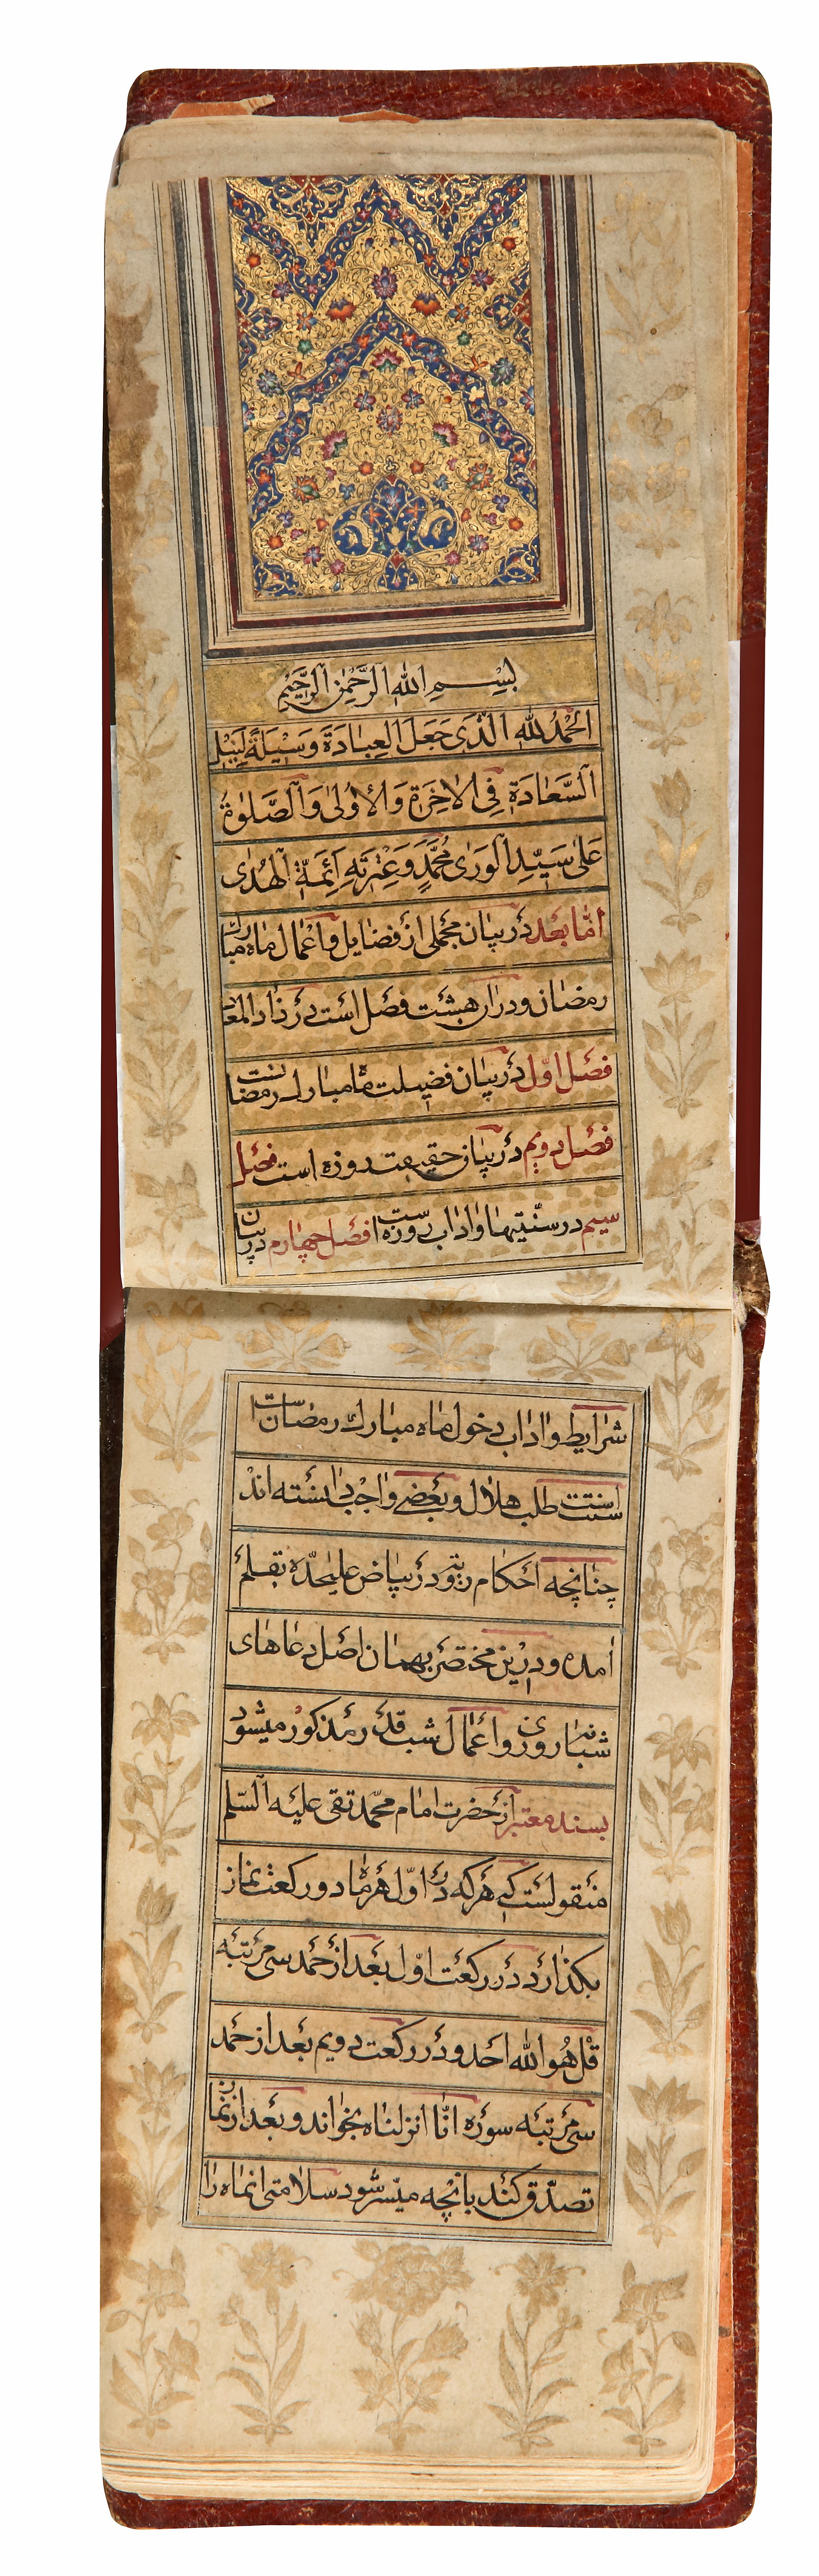 بِسْمِ اللهِ الرَّحْمٰنِ الرَّحِيْمِ
اَلْحَمْدُ لِلّٰهِ الَّذِى جَعَلَ الْعِبَادَةَ وَسِيْلَةً لِنَيْلِ
السَّعَادَةِ فِى الاٰخِرَةِ وَالْاُوْلىٰ وَالصَّلوٰةُ
عَلىٰ سَيِّدِ الْوَرىٰ مُحَمَّدٍ وَعِتْرَتِهِ اَئِمَّةِ الْهُدٰى
امّا بعد در بيان مجملى از فضايل و اعمال ماه مبارك
رمضان و در ان هشت فصل است در زاد المعاد
فصل اوّل در بيان فضيلت ماه مبارك رمضانست
فصل دويم در بيان حقيقت روزه است فصل
سيم در سنّتيها و اداب روزه است فصل چهارم در بيان
شرايط و اداب دخول ماه مبارك رمضان است
سنت است طلب هلال و بعضى واجب دانسته اند
چنانچه احكام در بياض عليحدّه بقلم
امده و درين مختصر بهمان اصل دعاهاى
شبانه روزى و اعمال شب قدر مذكور ميشود
بسند معتبر از حضرت امام محمّد تقى عليه السّلم
منقولست كه هر كه در اوّل هر ماه دو ركعت نماز
بكذارد در ركعت اوّل بعد از حمد سى مرتبه
قل هُو الله احد و در ركعت دويم بعد از حمد
سى مرتبه سوره انّا انزلناه بخواند و بعد از نماز
تصدّق كند بانچه ميسّر شود سلامتى انماه را